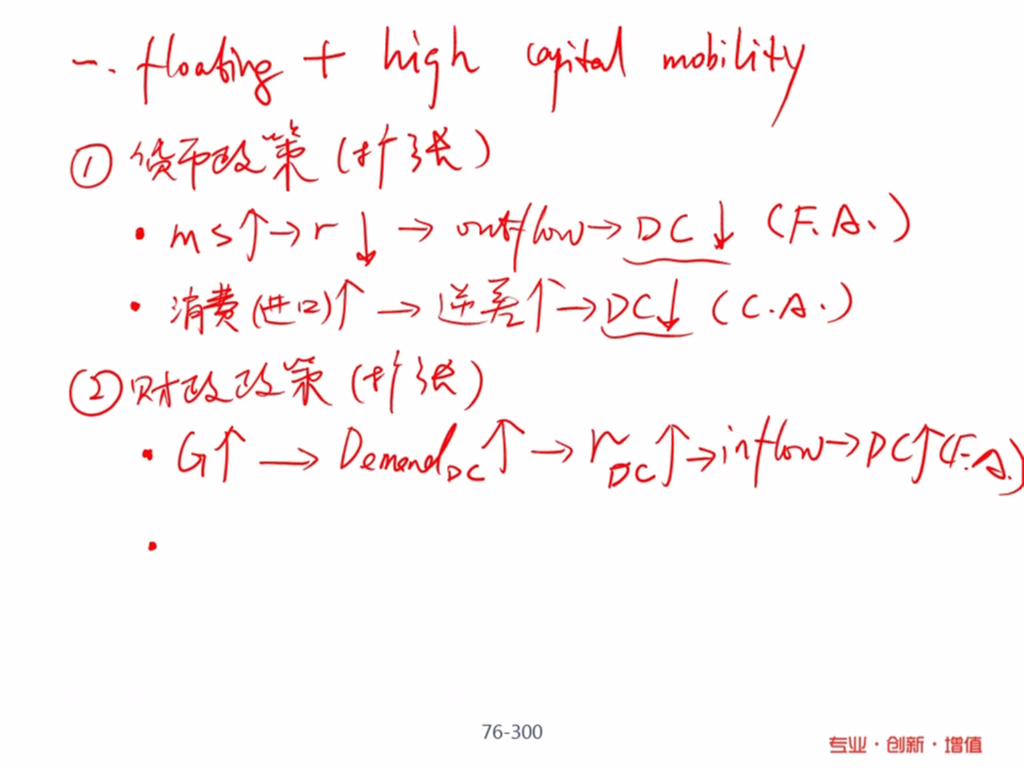 一. floating + high capital mobility
① 货币政策 (扩张)
• ms↑→r↓→outflow→DC↓ (F.A.)
• 消费(进口)↑→逆差↑→DC↓ (C.A.)
② 财政政策 (扩张)
• G↑→Demand DC↑→r DC↑→inflow→DC↑(F.A.)
•
76-300
专业·创新·增值